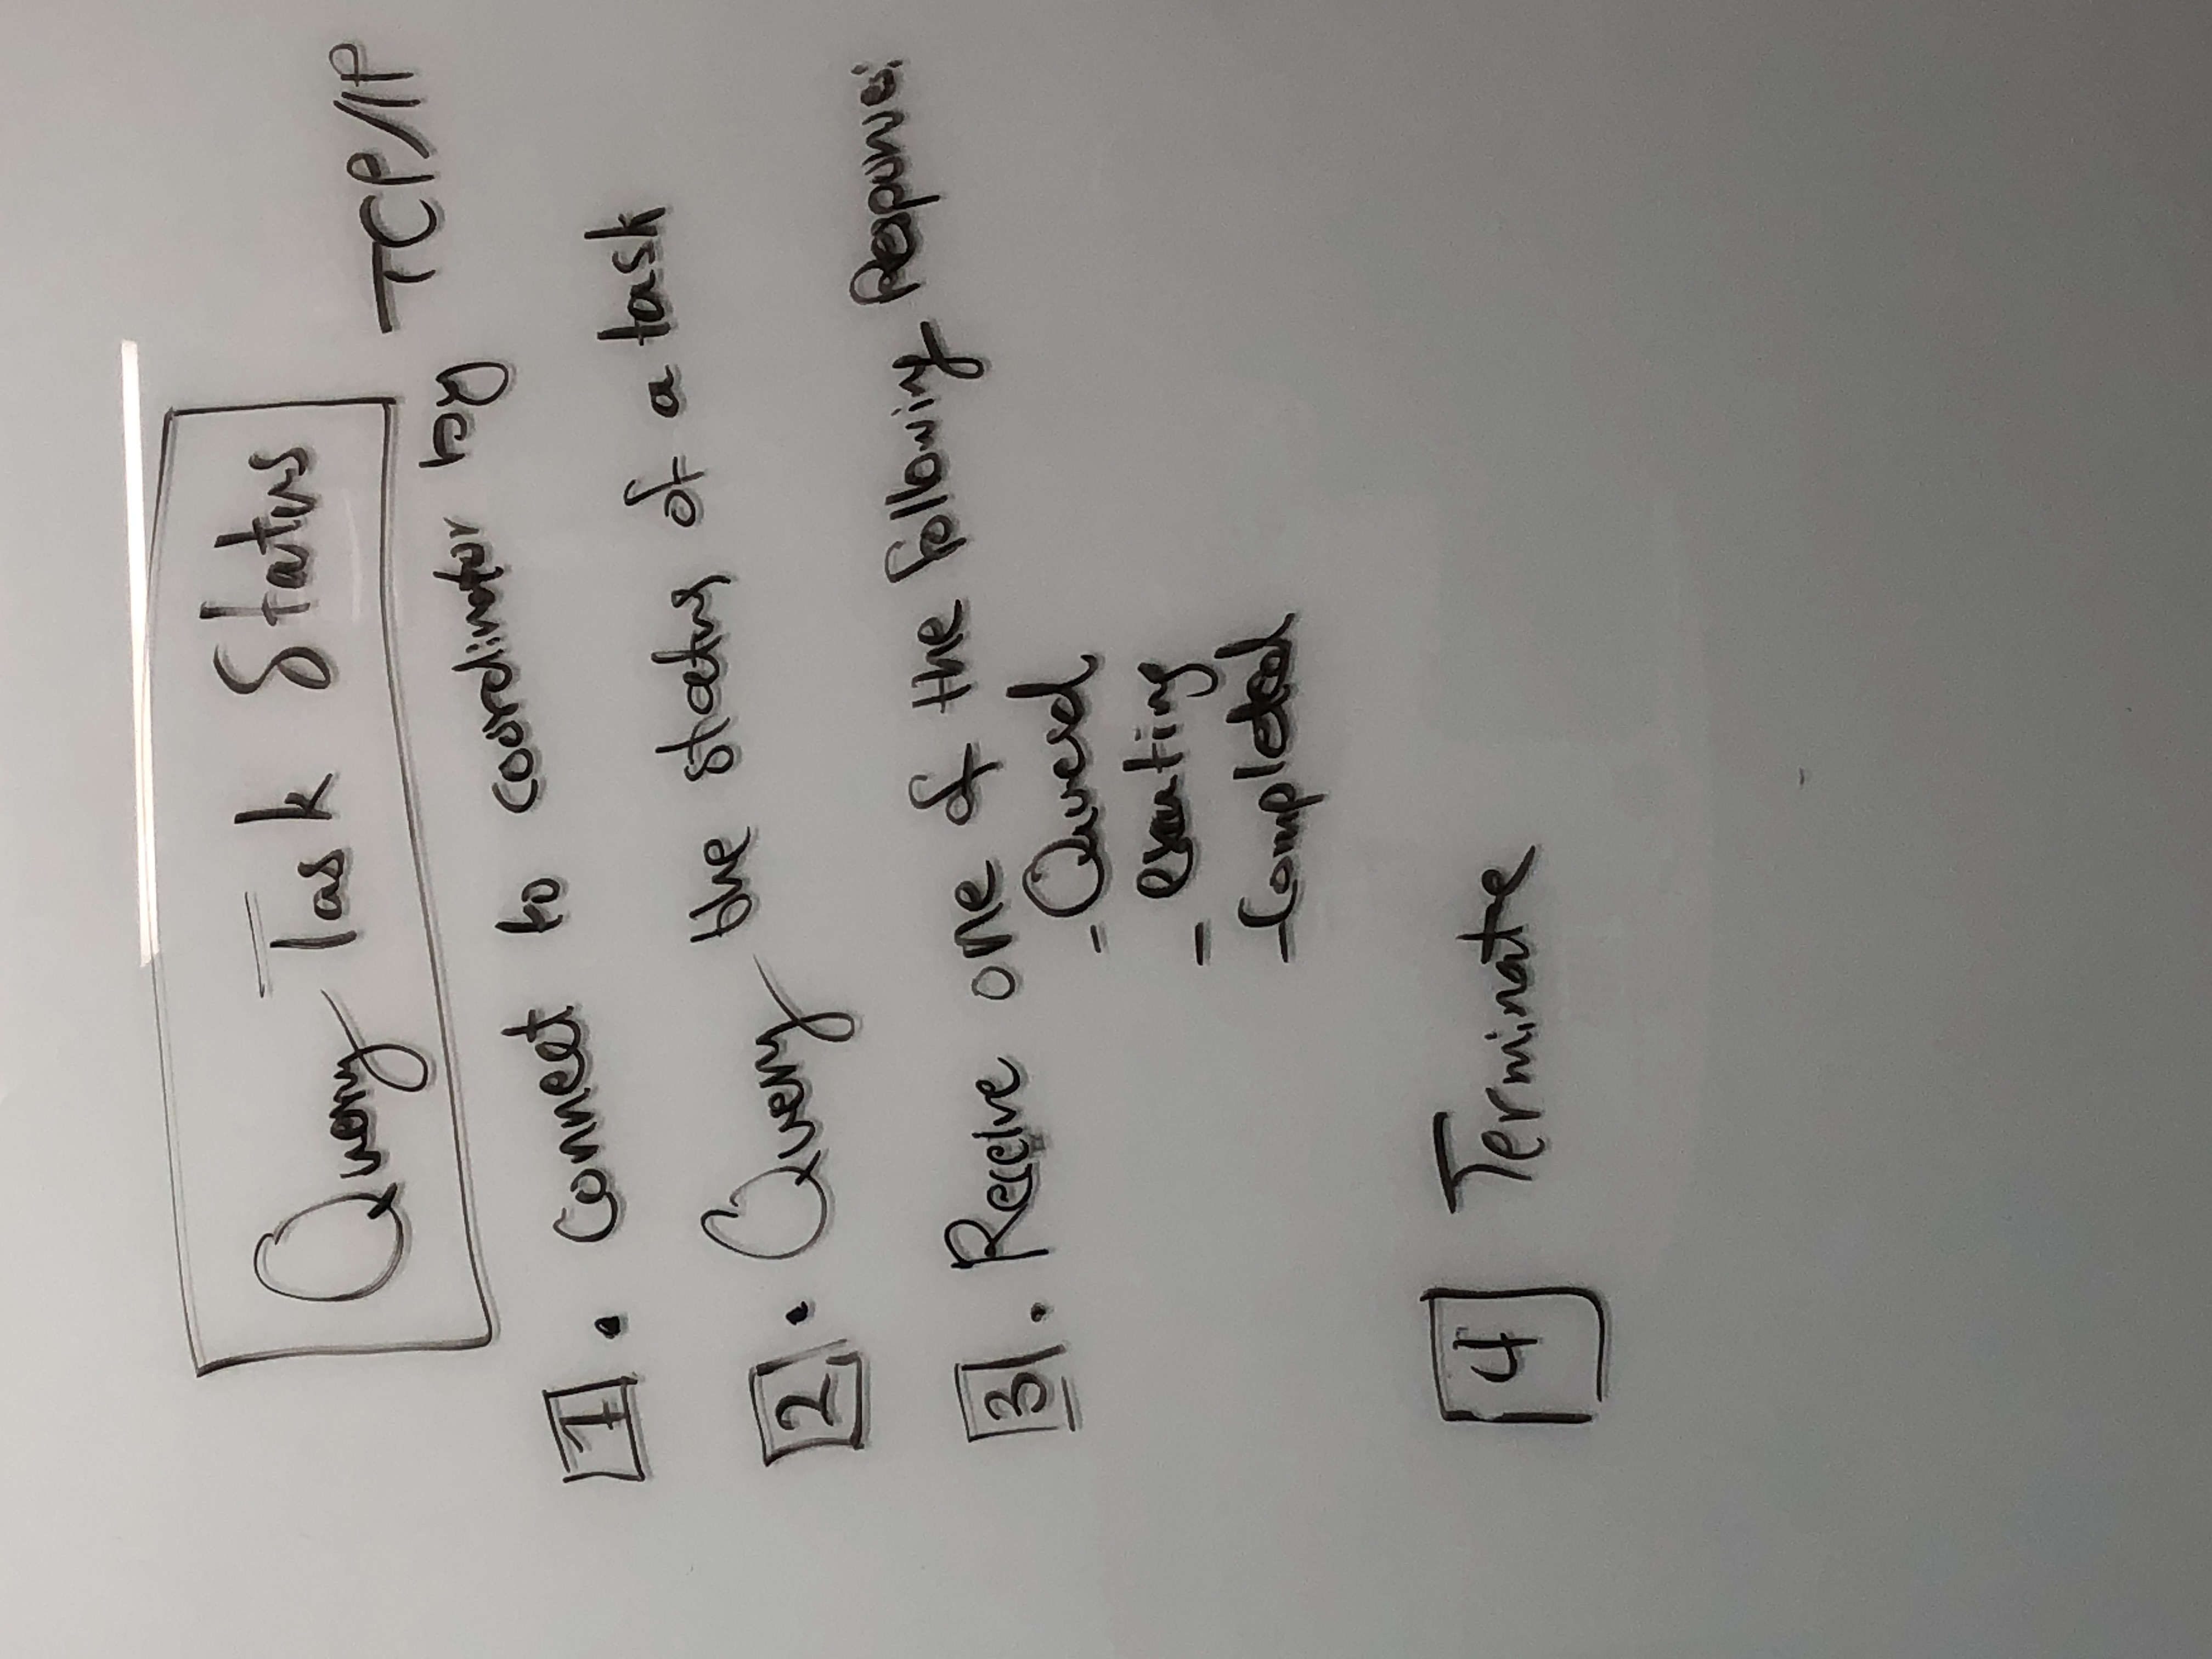 Query Task Status
1. Connect to coordinator by TCP/IP
2. Query the status of a task
3. Receive one of the following Responses:
- Queued
- executing
- Completed
4 Terminate